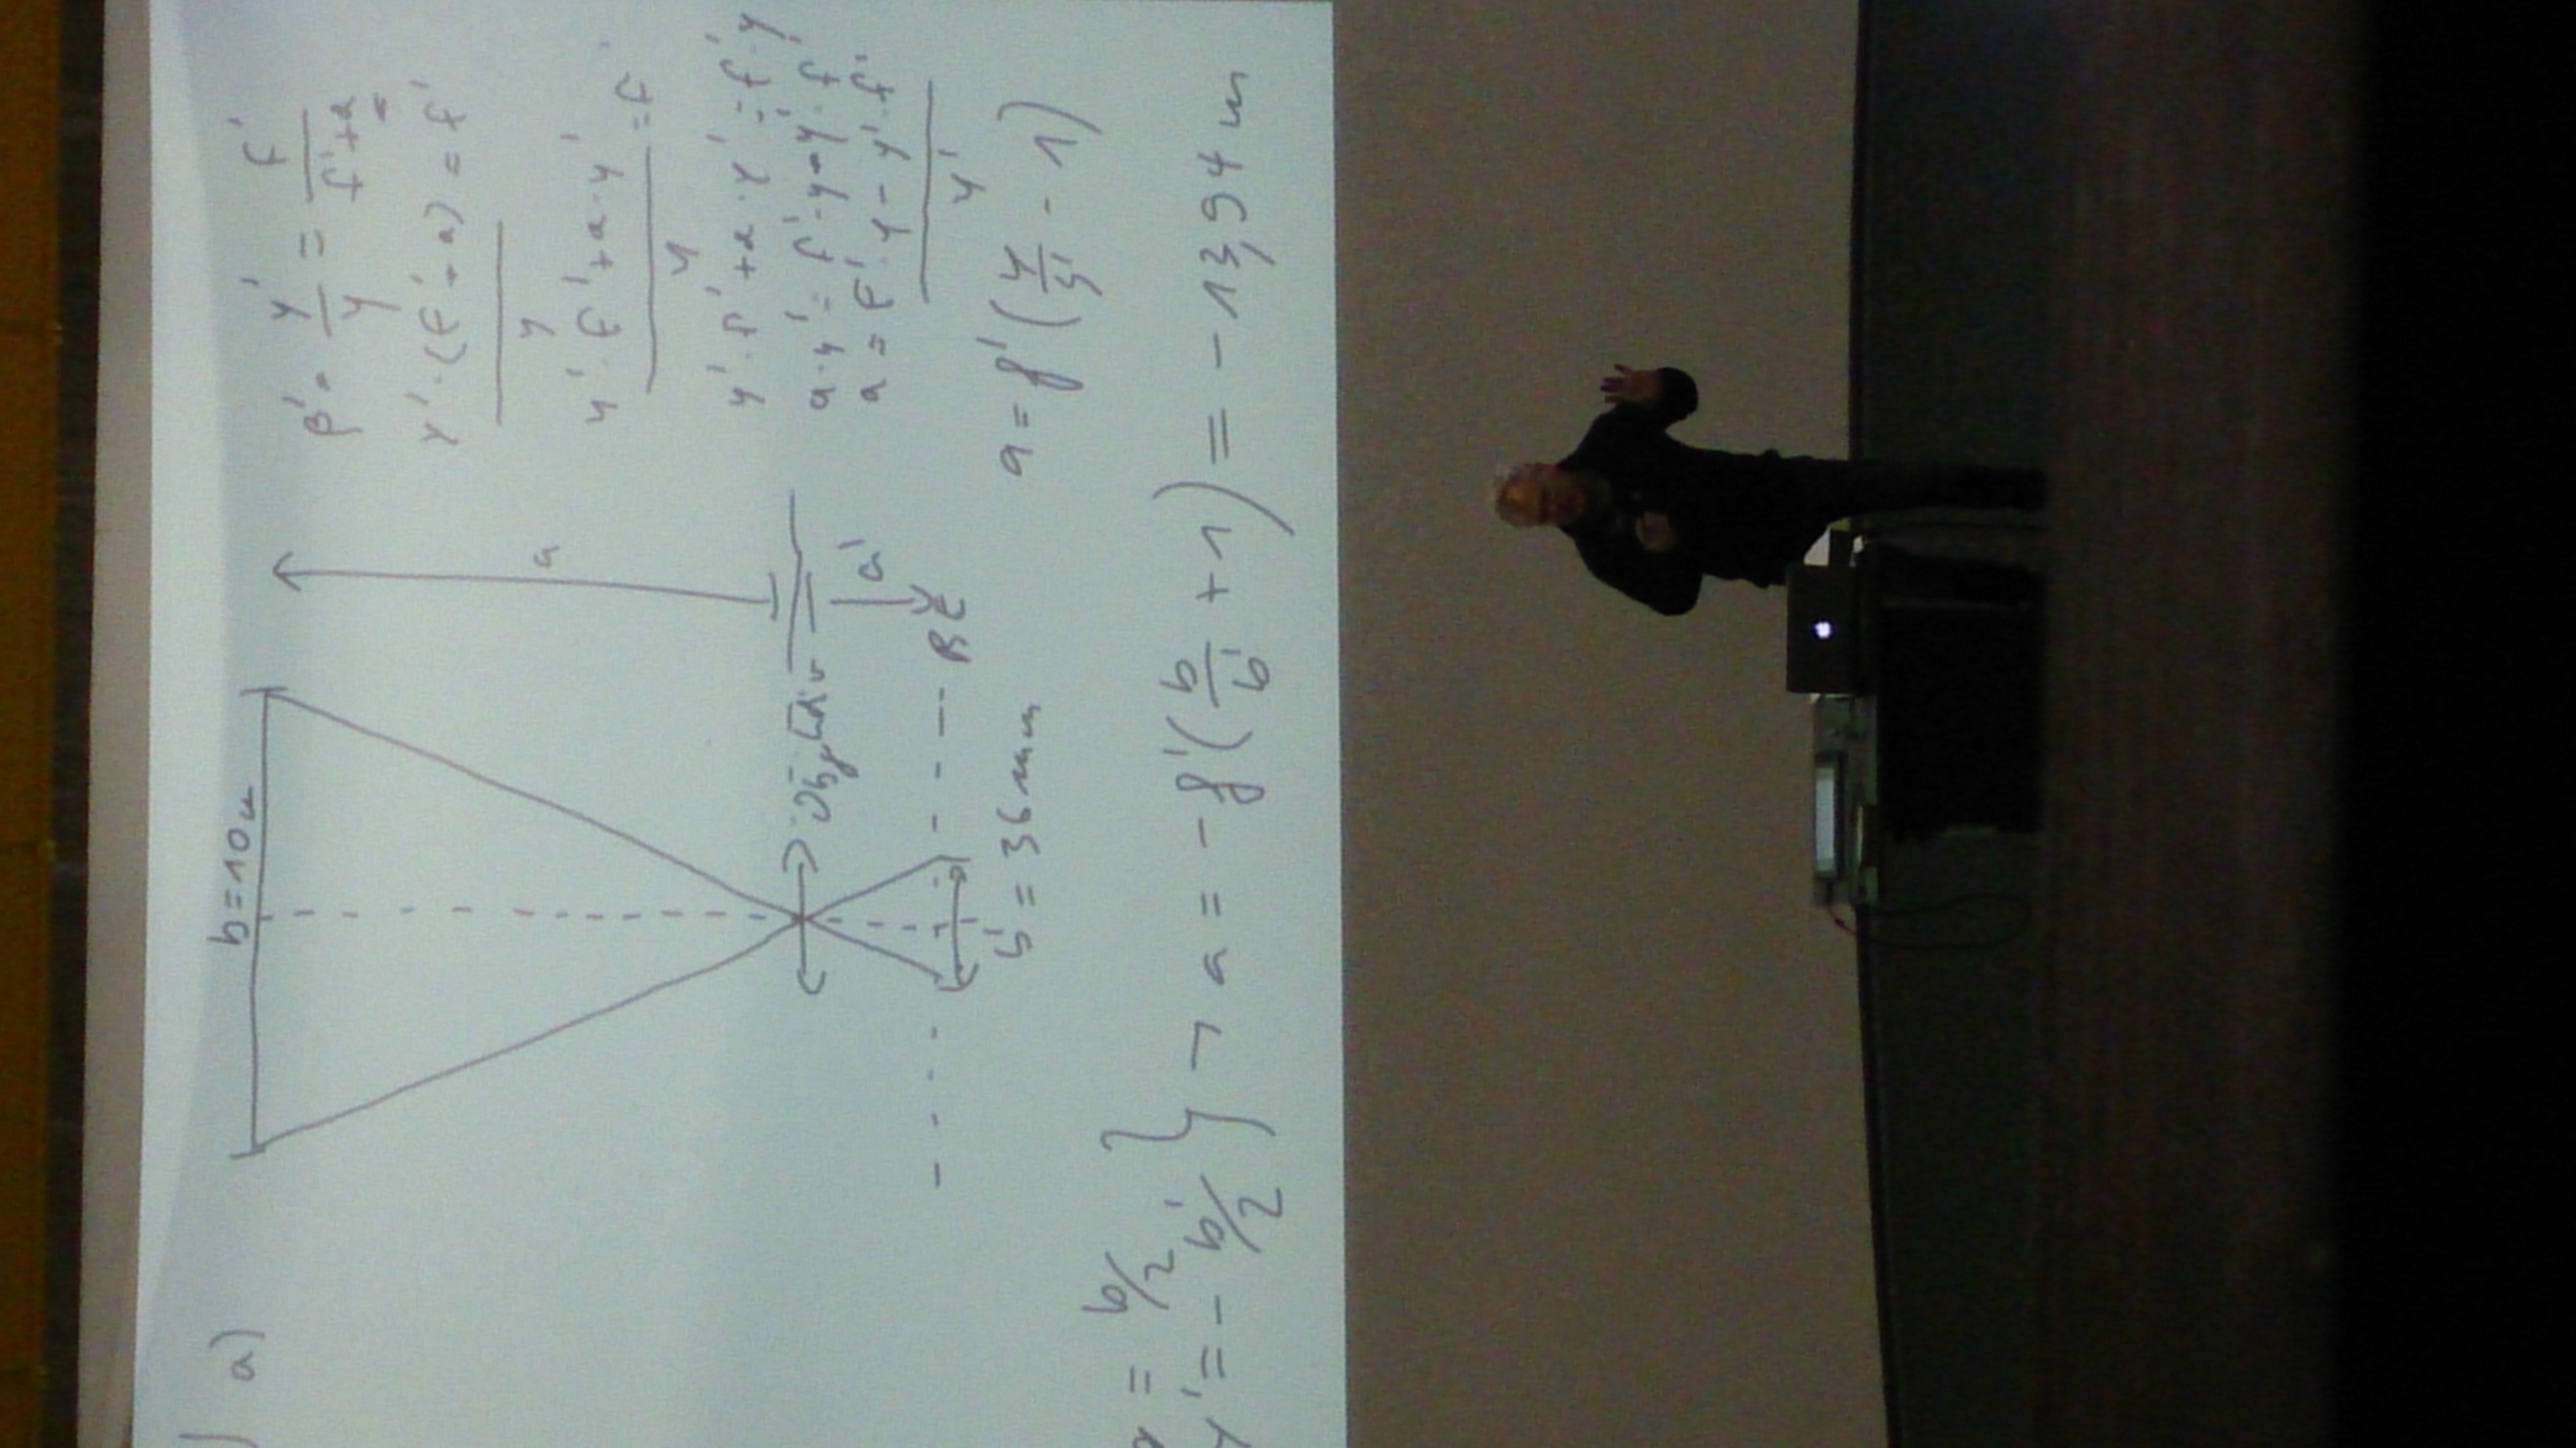 a)
b=10m
a
Objektiv
a'
BE
b'=36mm
β'= y'/y = f'/(f'+a)
y'·(f'+a)/y = f'
(y'·f'+a·y')/y = f'
y'·f'+a·y' = f'·y
a·y' = f'·y-y'·f'
a = (f'·y-y'·f')/y'
a=f'(y/y' - 1)
y = b/2
y'= - b'/2 } → a = - f'(b/b' +1) = - 13,94 m